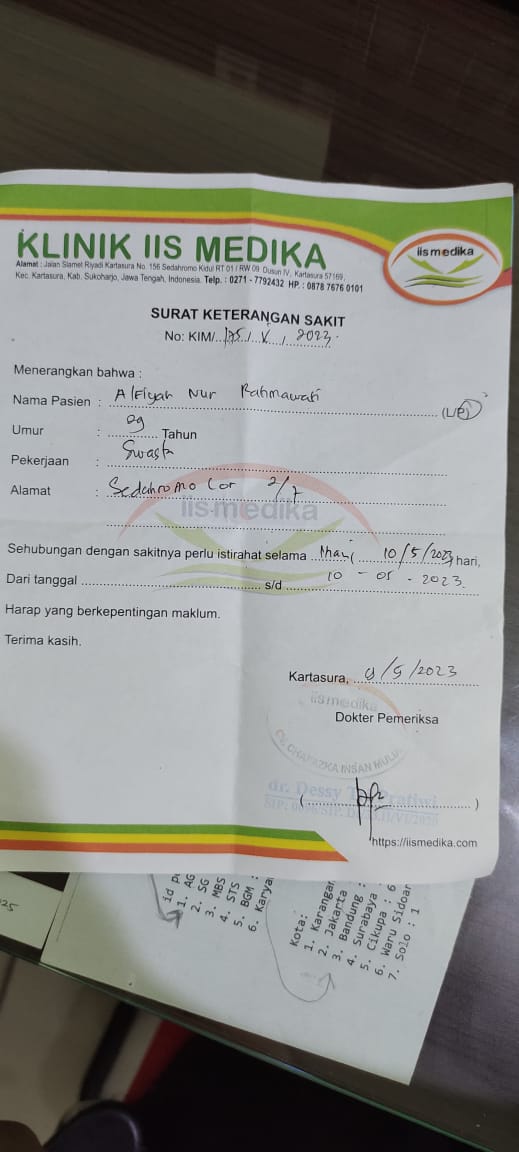 KLINIK IIS MEDIKA
Alamat : Jalan Slamet Riyadi Kartasura No. 156 Sedahromo Kidul RT 01 / RW 09 Dusun IV, Kartasura 57169,
Kec. Kartasura, Kab. Sukoharjo, Jawa Tengah, Indonesia. Telp. : 0271 - 7792432 HP. : 0878 7676 0101
iismedika
SURAT KETERANGAN SAKIT
No: KIM/ 175 / V / 2023
Menerangkan bahwa :
Nama Pasien : Alfiyah Nur Rahmawati (L/P)
Umur : Tahun
Pekerjaan : Swasta
Alamat : Sedahromo Lor 2/7
iis medika
Sehubungan dengan sakitnya perlu istirahat selama 1 hari 10/5/2023 hari,
Dari tanggal s/d 10 - 05 - 2023
Harap yang berkepentingan maklum.
Terima kasih.
Kartasura, /5/2023
iismedika
Dokter Pemeriksa
INSAN
dr. Dessy Pratiwi
( )
https://iismedika.com
id
1. AG
2. SG
3. MBS
4. STS
5. BGM :
6. Karya
Kota:
1. Karangan
2. Jakarta
3. Bandung :
4. Surabaya
5. Cikupa : 6
6. Waru Sidoar
7. Solo : 1